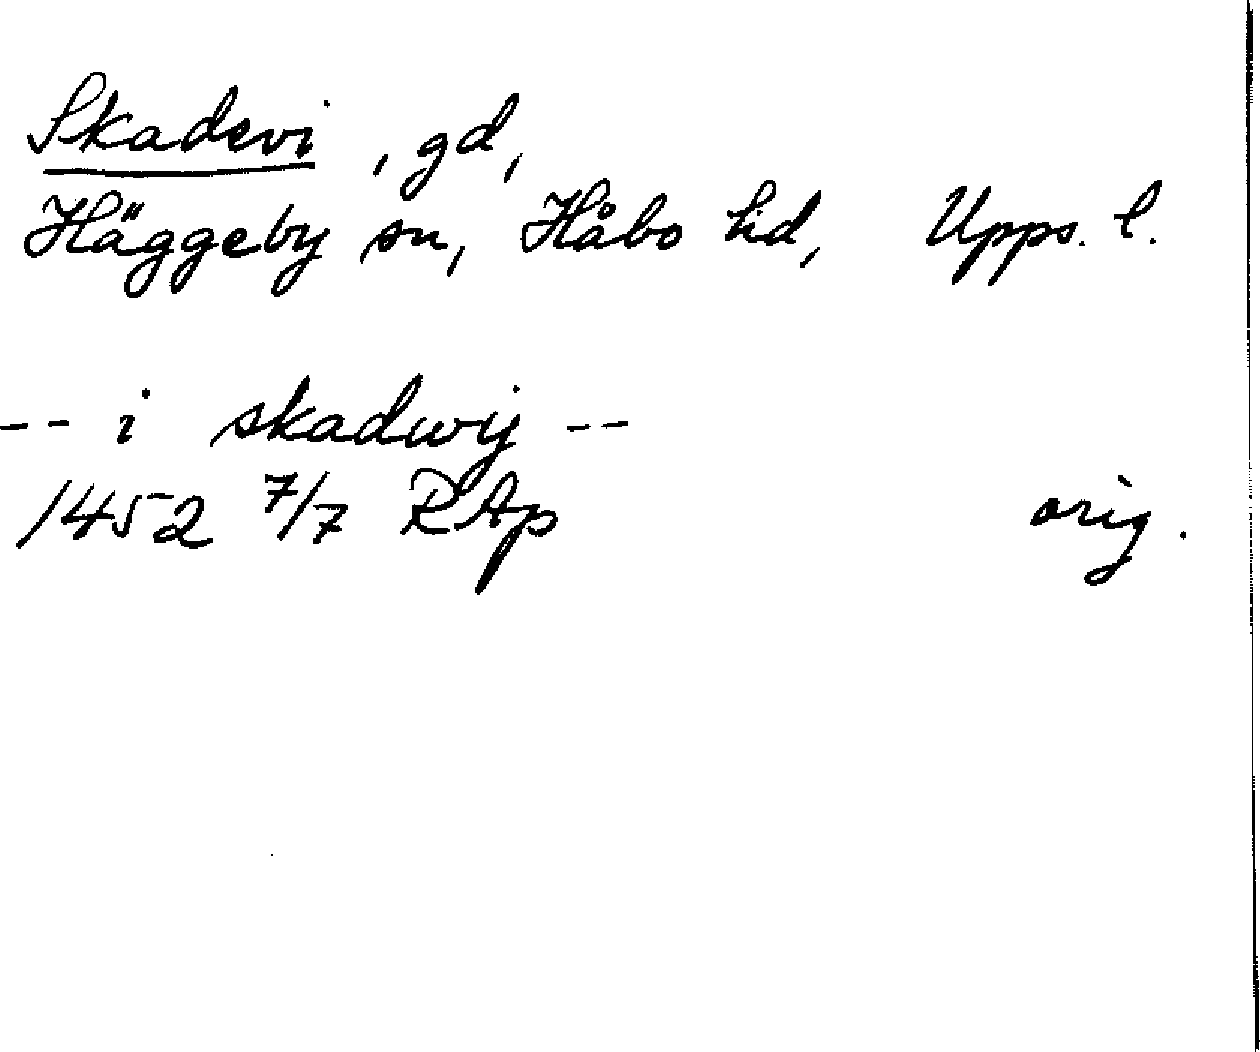 Skadevi, gd,
Häggeby sn, Håbo hd, Upps. l.
-- i skadwij --
1452 7/7 RAp orig.